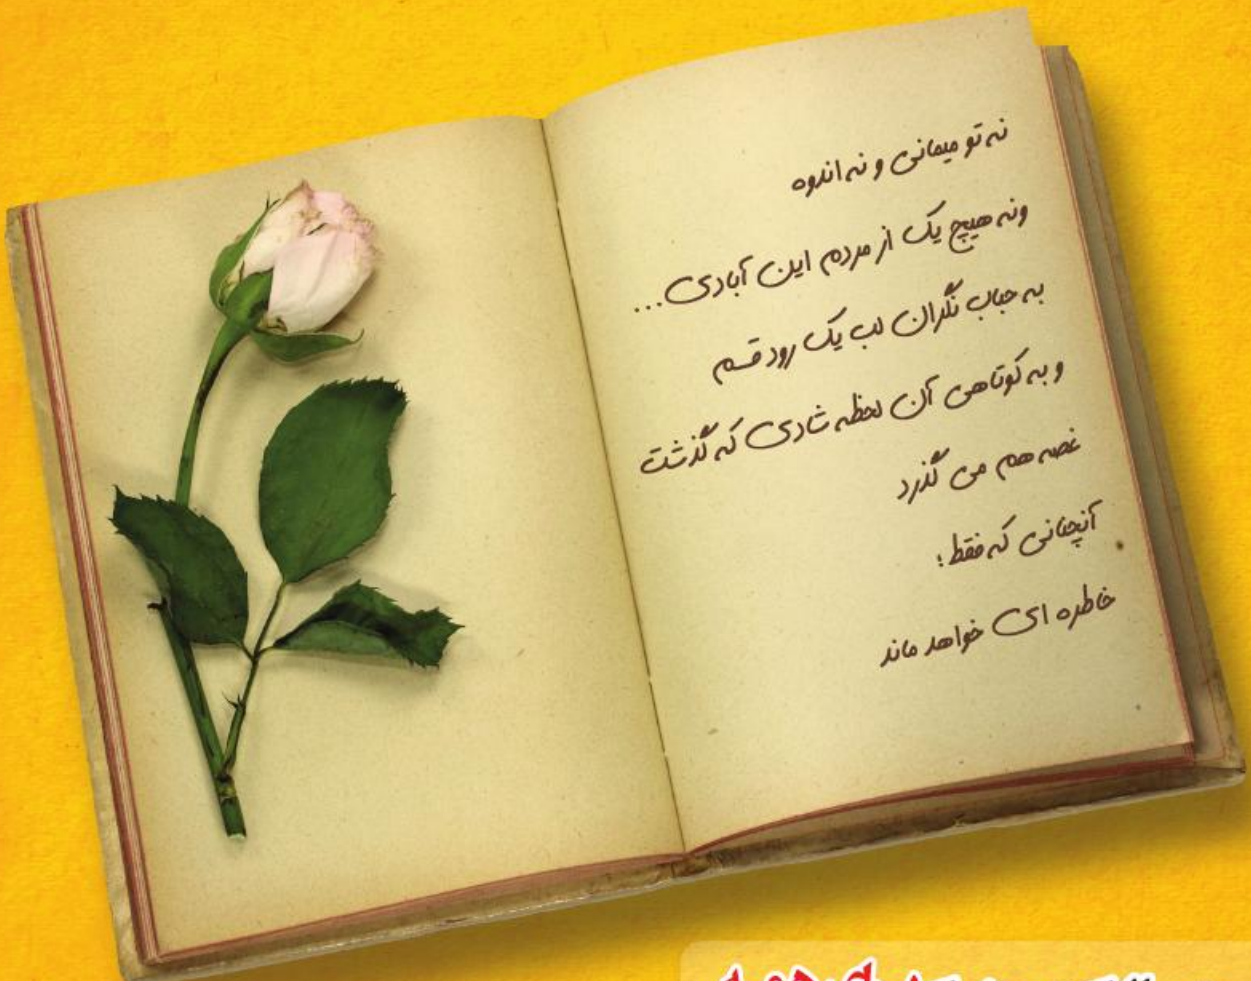 نه تو میمانی و نه اندوه
ونه هیچ یک از مردم این آبادی...
به حباب نگران لب یک رود قسم
و به کوتاهی آن لحظه شادی که گذشت
غصه هم می گذرد
آنچنانی که فقط ؛
خاطره ای خواهد ماند